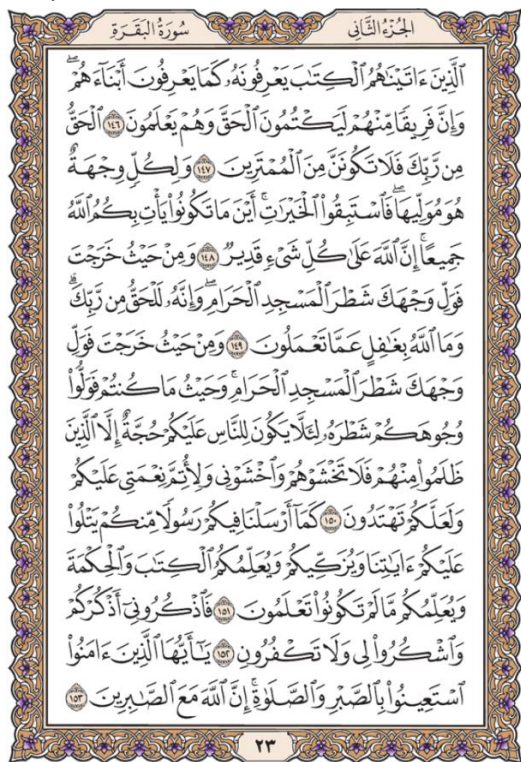 الجُزْءُ الثَّانِي
سُورَةُ البَقَرَةِ
ٱلَّذِينَ ءَاتَيْنَٰهُمُ ٱلْكِتَٰبَ يَعْرِفُونَهُۥ كَمَا يَعْرِفُونَ أَبْنَآءَهُمْۖ
وَإِنَّ فَرِيقًا مِّنْهُمْ لَيَكْتُمُونَ ٱلْحَقَّ وَهُمْ يَعْلَمُونَ ١٤٦ ٱلْحَقُّ
مِن رَّبِّكَ فَلَا تَكُونَنَّ مِنَ ٱلْمُمْتَرِينَ ١٤٧ وَلِكُلٍّ وِجْهَةٌ
هُوَ مُوَلِّيهَاۖ فَٱسْتَبِقُوا۟ ٱلْخَيْرَٰتِۚ أَيْنَ مَا تَكُونُوا۟ يَأْتِ بِكُمُ ٱللَّهُ
جَمِيعًاۚ إِنَّ ٱللَّهَ عَلَىٰ كُلِّ شَىْءٍ قَدِيرٌ ١٤٨ وَمِنْ حَيْثُ خَرَجْتَ
فَوَلِّ وَجْهَكَ شَطْرَ ٱلْمَسْجِدِ ٱلْحَرَامِۖ وَإِنَّهُۥ لَلْحَقُّ مِن رَّبِّكَۗ
وَمَا ٱللَّهُ بِغَٰفِلٍ عَمَّا تَعْمَلُونَ ١٤٩ وَمِنْ حَيْثُ خَرَجْتَ فَوَلِّ
وَجْهَكَ شَطْرَ ٱلْمَسْجِدِ ٱلْحَرَامِۚ وَحَيْثُ مَا كُنتُمْ فَوَلُّوا۟
وُجُوهَكُمْ شَطْرَهُۥ لِئَلَّا يَكُونَ لِلنَّاسِ عَلَيْكُمْ حُجَّةٌ إِلَّا ٱلَّذِينَ
ظَلَمُوا۟ مِنْهُمْ فَلَا تَخْشَوْهُمْ وَٱخْشَوْنِى وَلِأُتِمَّ نِعْمَتِى عَلَيْكُمْ
وَلَعَلَّكُمْ تَهْتَدُونَ ١٥٠ كَمَآ أَرْسَلْنَا فِيكُمْ رَسُولًا مِّنكُمْ يَتْلُوا۟
عَلَيْكُمْ ءَايَٰتِنَا وَيُزَكِّيكُمْ وَيُعَلِّمُكُمُ ٱلْكِتَٰبَ وَٱلْحِكْمَةَ
وَيُعَلِّمُكُم مَّا لَمْ تَكُونُوا۟ تَعْلَمُونَ ١٥١ فَٱذْكُرُونِىٓ أَذْكُرْكُمْ
وَٱشْكُرُوا۟ لِى وَلَا تَكْفُرُونِ ١٥٢ يَٰٓأَيُّهَا ٱلَّذِينَ ءَامَنُوا۟
ٱسْتَعِينُوا۟ بِٱلصَّبْرِ وَٱلصَّلَوٰةِۚ إِنَّ ٱللَّهَ مَعَ ٱلصَّٰبِرِينَ ١٥٣
٢٣